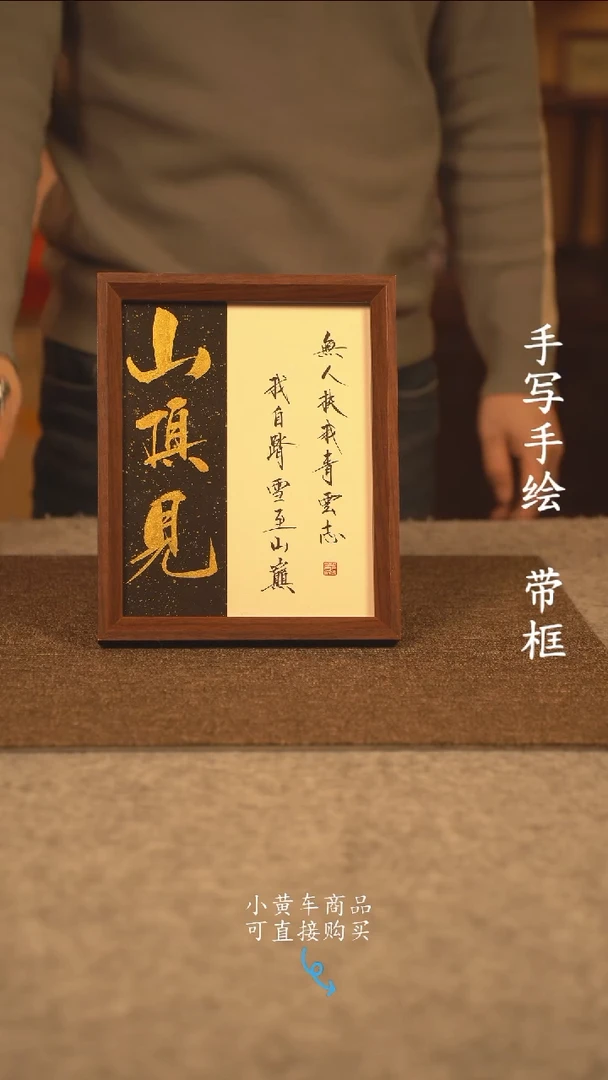 山頂見
無人扶我青雲志
我自踏雪至山巔
手写手绘 带框
小黄车商品
可直接购买